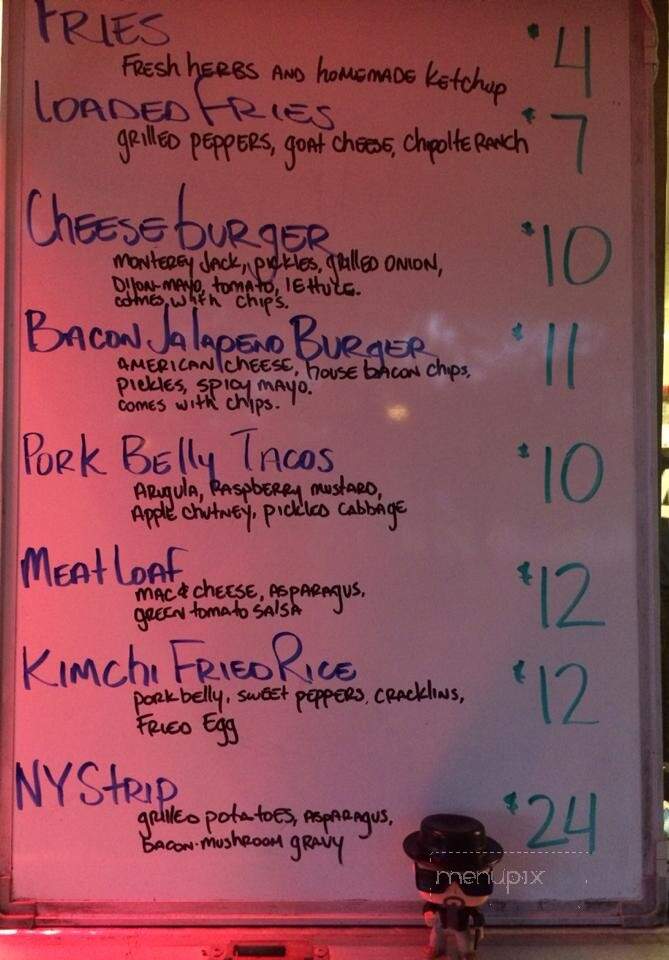 FRIES $4
FRESH HERBS AND HOMEMADE KETCHUP
LOADED FRIES $7
GRILLED PEPPERS, GOAT CHEESE, CHIPOLTE RANCH
CHEESEBURGER $10
MONTEREY JACK, PICKLES, GRILLED ONION,
DIJON-MAYO, TOMATO, LETTUCE.
COMES WITH CHIPS.
BACON JALAPENO BURGER $11
AMERICAN CHEESE, HOUSE BACON CHIPS,
PICKLES, SPICY MAYO.
COMES WITH CHIPS.
PORK BELLY TACOS $10
ARUGULA, RASPBERRY MUSTARD,
APPLE CHUTNEY, PICKLED CABBAGE
MEATLOAF $12
MAC & CHEESE, ASPARAGUS,
GREEN TOMATO SALSA
KIMCHI FRIED RICE $12
PORK BELLY, SWEET PEPPERS, CRACKLINS,
FRIED EGG
NY STRIP $24
GRILLED POTATOES, ASPARAGUS,
BACON-MUSHROOM GRAVY
menupix